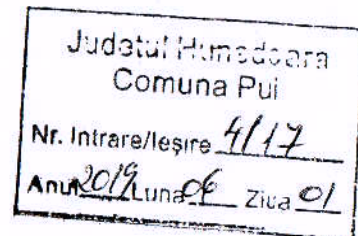 Județul Hunedoara
Comuna Pui
Nr. Intrare/Ieșire 4117
Anul 2019 Luna 06 Ziua 01